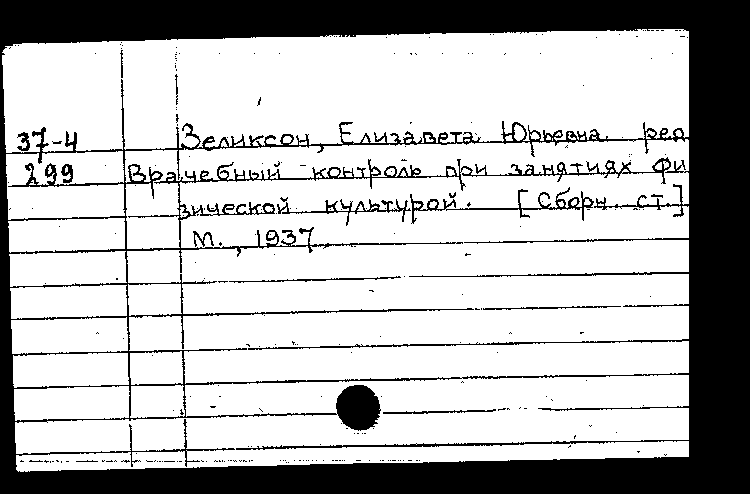 37-4 Зеликсон, Елизавета Юрьевна ред
299 Врачебный контроль при занятиях фи
зической культурой. [Сборн. ст.]
М., 1937